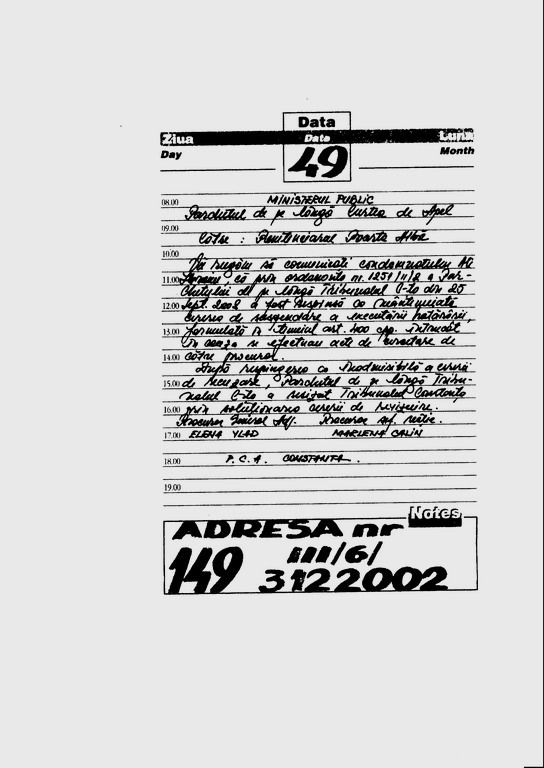 Data
Ziua Date Luna
Day 49 Month
08.00 MINISTERUL PUBLIC
Parchetul de pe lângă Curtea de Apel
09.00
Către : Penitenciarul Poarta Albă
10.00
Vă rugăm să comunicați condamnatului
11.00 că prin ordonanța nr. 1251/II/2 a Par-
chetului de pe lângă Tribunalul C-ța din 25
12.00 Sept. 2002 a fost respinsă ca
cererea de suspendare a executării hotărârii,
13.00 formulată în temeiul art. 400 cpp. întrucât
în cauză se efectuau acte de cercetare de
14.00 către procuror.
După respingerea ca inadmisibilă a cererii
15.00 de recuzare, Parchetul de pe lângă Tribu-
nalul C-ța a sesizat Tribunalul Constanța
16.00 prin soluționarea cererii de revizuire.
Procuror General Adj. Procuror șef secție.
17.00 ELENA VLAD MARLENA CALIN
18.00 P.C.A. CONSTANTA.
19.00
Notes
ADRESA nr
149 III/6/
3122002